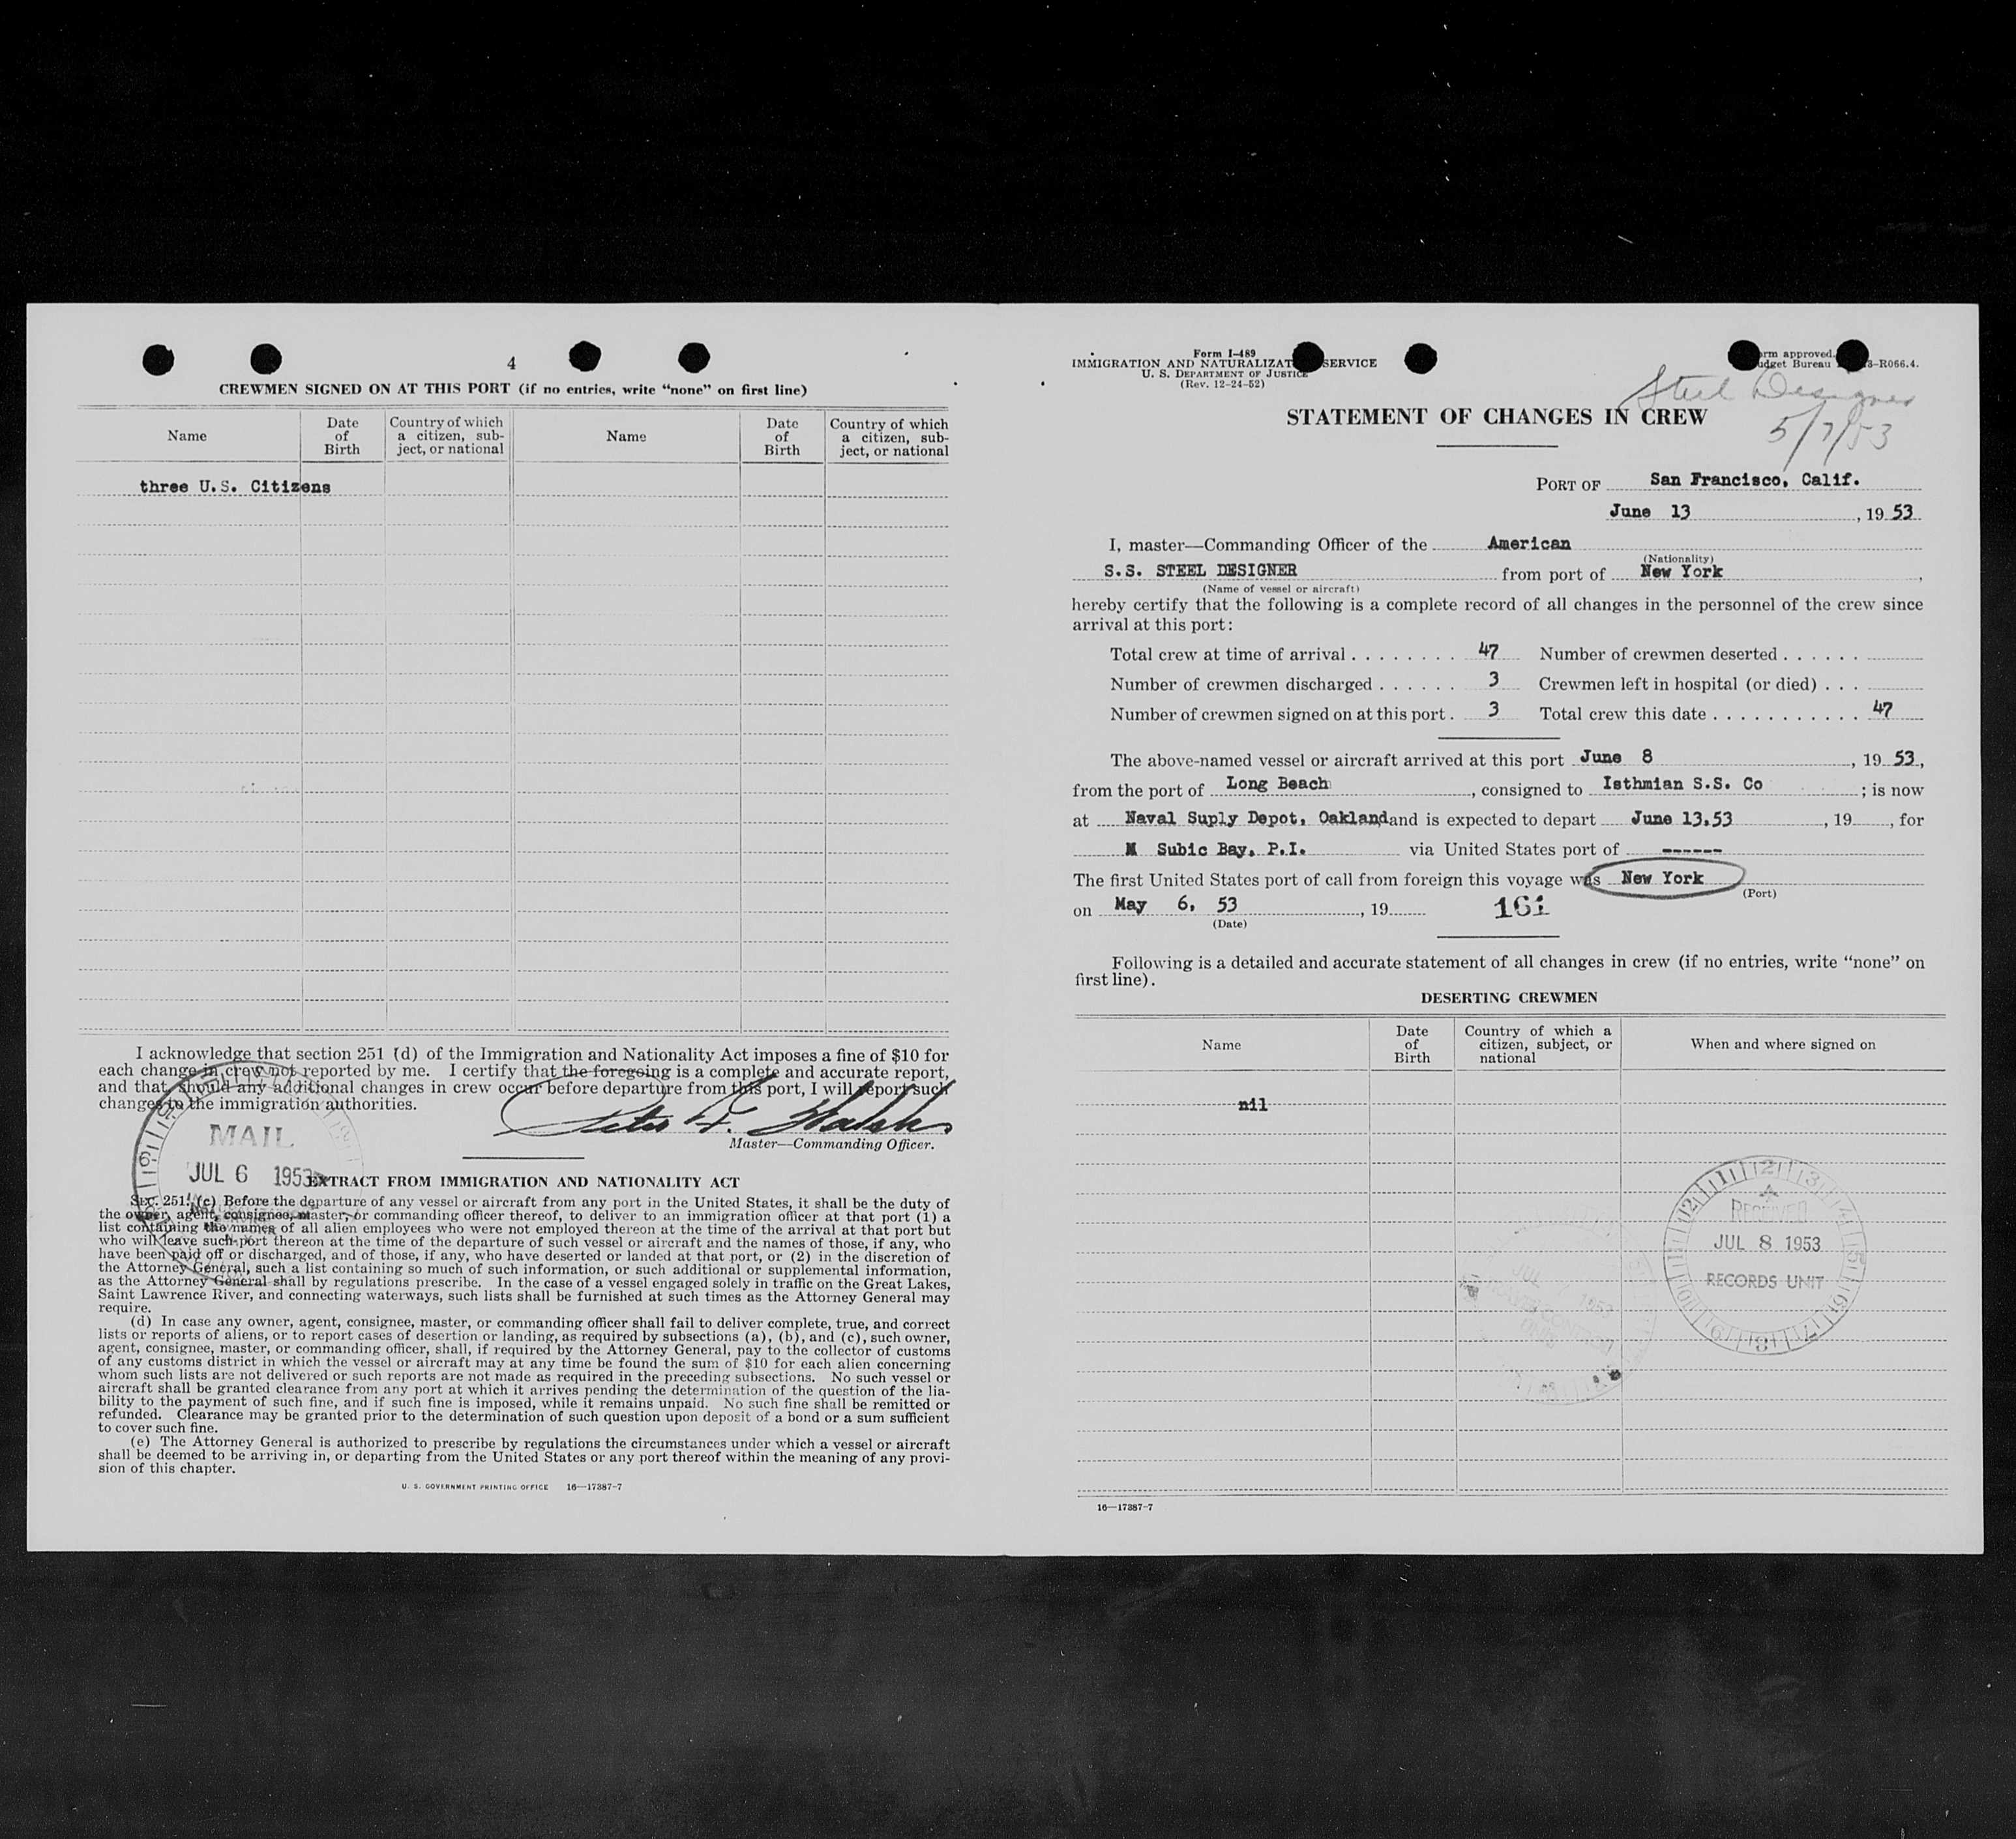 4
CREWMEN SIGNED ON AT THIS PORT (if no entries, write “none” on first line)
Name
Date of Birth
Country of which a citizen, sub- ject, or national
Name
Date of Birth
Country of which a citizen, sub- ject, or national
three U.S. Citizens
I acknowledge that section 251 (d) of the Immigration and Nationality Act imposes a fine of $10 for
each change in crew not reported by me. I certify that the foregoing is a complete and accurate report,
and that should any additional changes in crew occur before departure from this port, I will report such
changes to the immigration authorities.
Master—Commanding Officer.
MAIL
JUL 6 1953
EXTRACT FROM IMMIGRATION AND NATIONALITY ACT
SEC. 251. (c) Before the departure of any vessel or aircraft from any port in the United States, it shall be the duty of
the owner, agent, consignee, master, or commanding officer thereof, to deliver to an immigration officer at that port (1) a
list containing the names of all alien employees who were not employed thereon at the time of the arrival at that port but
who will leave such port thereon at the time of the departure of such vessel or aircraft and the names of those, if any, who
have been paid off or discharged, and of those, if any, who have deserted or landed at that port, or (2) in the discretion of
the Attorney General, such a list containing so much of such information, or such additional or supplemental information,
as the Attorney General shall by regulations prescribe. In the case of a vessel engaged solely in traffic on the Great Lakes,
Saint Lawrence River, and connecting waterways, such lists shall be furnished at such times as the Attorney General may
require.
(d) In case any owner, agent, consignee, master, or commanding officer shall fail to deliver complete, true, and correct
lists or reports of aliens, or to report cases of desertion or landing, as required by subsections (a), (b), and (c), such owner,
agent, consignee, master, or commanding officer, shall, if required by the Attorney General, pay to the collector of customs
of any customs district in which the vessel or aircraft may at any time be found the sum of $10 for each alien concerning
whom such lists are not delivered or such reports are not made as required in the preceding subsections. No such vessel or
aircraft shall be granted clearance from any port at which it arrives pending the determination of the question of the lia-
bility to the payment of such fine, and if such fine is imposed, while it remains unpaid. No such fine shall be remitted or
refunded. Clearance may be granted prior to the determination of such question upon deposit of a bond or a sum sufficient
to cover such fine.
(e) The Attorney General is authorized to prescribe by regulations the circumstances under which a vessel or aircraft
shall be deemed to be arriving in, or departing from the United States or any port thereof within the meaning of any provi-
sion of this chapter.
U. S. GOVERNMENT PRINTING OFFICE 16—17387-7
Form I-489
IMMIGRATION AND NATURALIZAT SERVICE
U. S. DEPARTMENT OF JUSTICE
(Rev. 12-24-52)
rm approved.
udget Bureau -R066.4.
Steel Designer
5/7/53
STATEMENT OF CHANGES IN CREW
PORT OF San Francisco, Calif.
June 13, 19 53
I, master—Commanding Officer of the American
(Nationality)
S.S. STEEL DESIGNER from port of New York,
(Name of vessel or aircraft)
hereby certify that the following is a complete record of all changes in the personnel of the crew since
arrival at this port:
Total crew at time of arrival . . . . . . . . 47 Number of crewmen deserted . . . . . .
Number of crewmen discharged . . . . . . 3 Crewmen left in hospital (or died) . . .
Number of crewmen signed on at this port . 3 Total crew this date . . . . . . . . . . . 47
The above-named vessel or aircraft arrived at this port June 8, 19 53,
from the port of Long Beach, consigned to Isthmian S.S. Co; is now
at Naval Suply Depot, Oakland and is expected to depart June 13.53, 19, for
M Subic Bay, P.I. via United States port of ------
The first United States port of call from foreign this voyage was New York
(Port)
on May 6, 53, 19 161
(Date)
Following is a detailed and accurate statement of all changes in crew (if no entries, write “none” on
first line).
DESERTING CREWMEN
Name
Date of Birth
Country of which a citizen, subject, or national
When and where signed on
nil
RECEIVED
JUL 8 1953
RECORDS UNIT
JUL 7 1953
16—17387-7